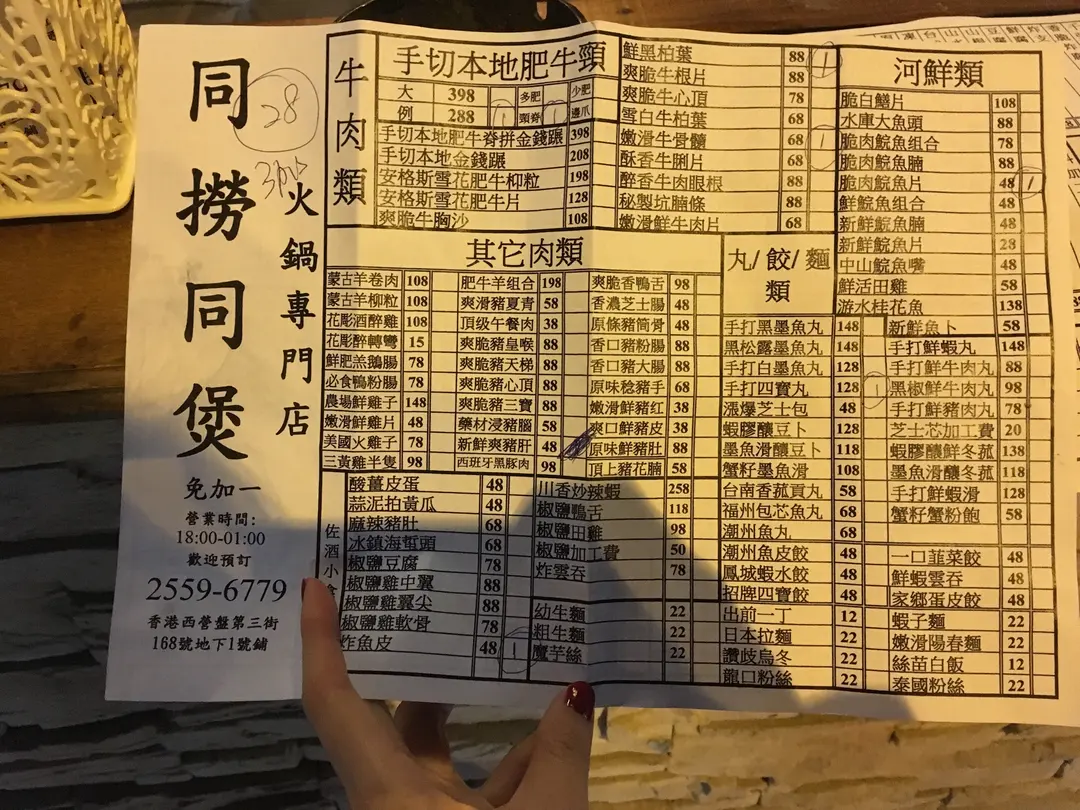 同撈同煲
火鍋專門店
28
免加一
營業時間:
18:00-01:00
歡迎預訂
2559-6779
香港西營盤第三街
168號地下1號鋪
牛肉類
手切本地肥牛頸
大 398 多肥 少肥
例 288 頸脊 邊爪
手切本地肥牛脊拼金錢𦟌 398
手切本地金錢𦟌 208
安格斯雪花肥牛柳粒 198
安格斯雪花肥牛片 128
爽脆牛胸沙 108
鮮黑柏葉 88 1
爽脆牛根片 88
爽脆牛心頂 78
雪白牛柏葉 68
嫩滑牛骨髓 68 1
酥香牛脷片 68
醉香牛肉眼根 88
秘製坑腩條 88
嫩滑鮮牛肉片 68
河鮮類
脆白鱔片 108
水庫大魚頭 88
脆肉鯇魚組合 78
脆肉鯇魚腩 88
脆肉鯇魚片 48 1
鮮鯇魚組合 48
新鮮鯇魚腩 48
新鮮鯇魚片 28
中山鯇魚嘴 48
鮮活田雞 58
游水桂花魚 138
新鮮魚卜 58
其它肉類
蒙古羊卷肉 108
蒙古羊柳粒 108
花彫酒醉雞 108
花彫醉轉彎 15
鮮肥羔鵝腸 78
必食鴨粉腸 78
農場鮮雞子 148
嫩滑鮮雞片 48
美國火雞子 78
三黃雞半隻 98
肥牛羊組合 198
爽滑豬夏青 58
頂級午餐肉 38
爽脆豬皇喉 88
爽脆豬天梯 88
爽脆豬心頂 88
爽脆豬三寶 88
藥材浸豬腦 58
新鮮爽豬肝 48
西班牙黑豚肉 98
爽脆香鴨舌 98
香濃芝士腸 48
原條豬筒骨 48
香口豬粉腸 88
香口豬大腸 88
原味稔豬手 68
嫩滑鮮豬红 38
爽口鮮豬皮 38
原味鮮豬肚 88
頂上豬花腩 58
丸/餃/麵類
手打黑墨魚丸 148
黑松露墨魚丸 148
手打白墨魚丸 128
手打四寶丸 128 1
漲爆芝士包 48
蝦膠釀豆卜 128
墨魚滑釀豆卜 118
蟹籽墨魚滑 108
台南香菰貢丸 58
福州包芯魚丸 68
潮州魚丸 68
潮州魚皮餃 48
鳳城蝦水餃 48
招牌四寶餃 48
出前一丁 12
日本拉麵 22
讚岐烏冬 22
龍口粉絲 22
手打鮮蝦丸 148
手打鮮牛肉丸 88
黑椒鮮牛肉丸 98
手打鮮豬肉丸 78
芝士芯加工費 20
蝦膠釀鮮冬菰 138
墨魚滑釀冬菰 118
手打鮮蝦滑 128
蟹籽蟹粉飽 58
一口韮菜餃 48
鮮蝦雲吞 48
家鄉蛋皮餃 48
蝦子麵 22
嫩滑陽春麵 22
絲苗白飯 12
泰國粉絲 22
佐酒小
酸薑皮蛋 48
蒜泥拍黃瓜 48
麻辣豬肚 68
冰鎮海蜇頭 68
椒鹽豆腐 78
椒鹽雞中翼 88
椒鹽雞翼尖 88
椒鹽雞軟骨 78
炸魚皮 48 1
川香炒辣蝦 258
椒鹽鴨舌 118
椒鹽田雞 98
椒鹽加工費 50
炸雲吞 78
幼生麵 22
粗生麵 22
魔芋絲 22